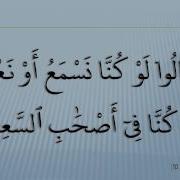 الُوا۟ لَوْ كُنَّا نَسْمَعُ أَوْ نَعْ
كُنَّا فِىٓ أَصْحَٰبِ ٱلسَّعِ